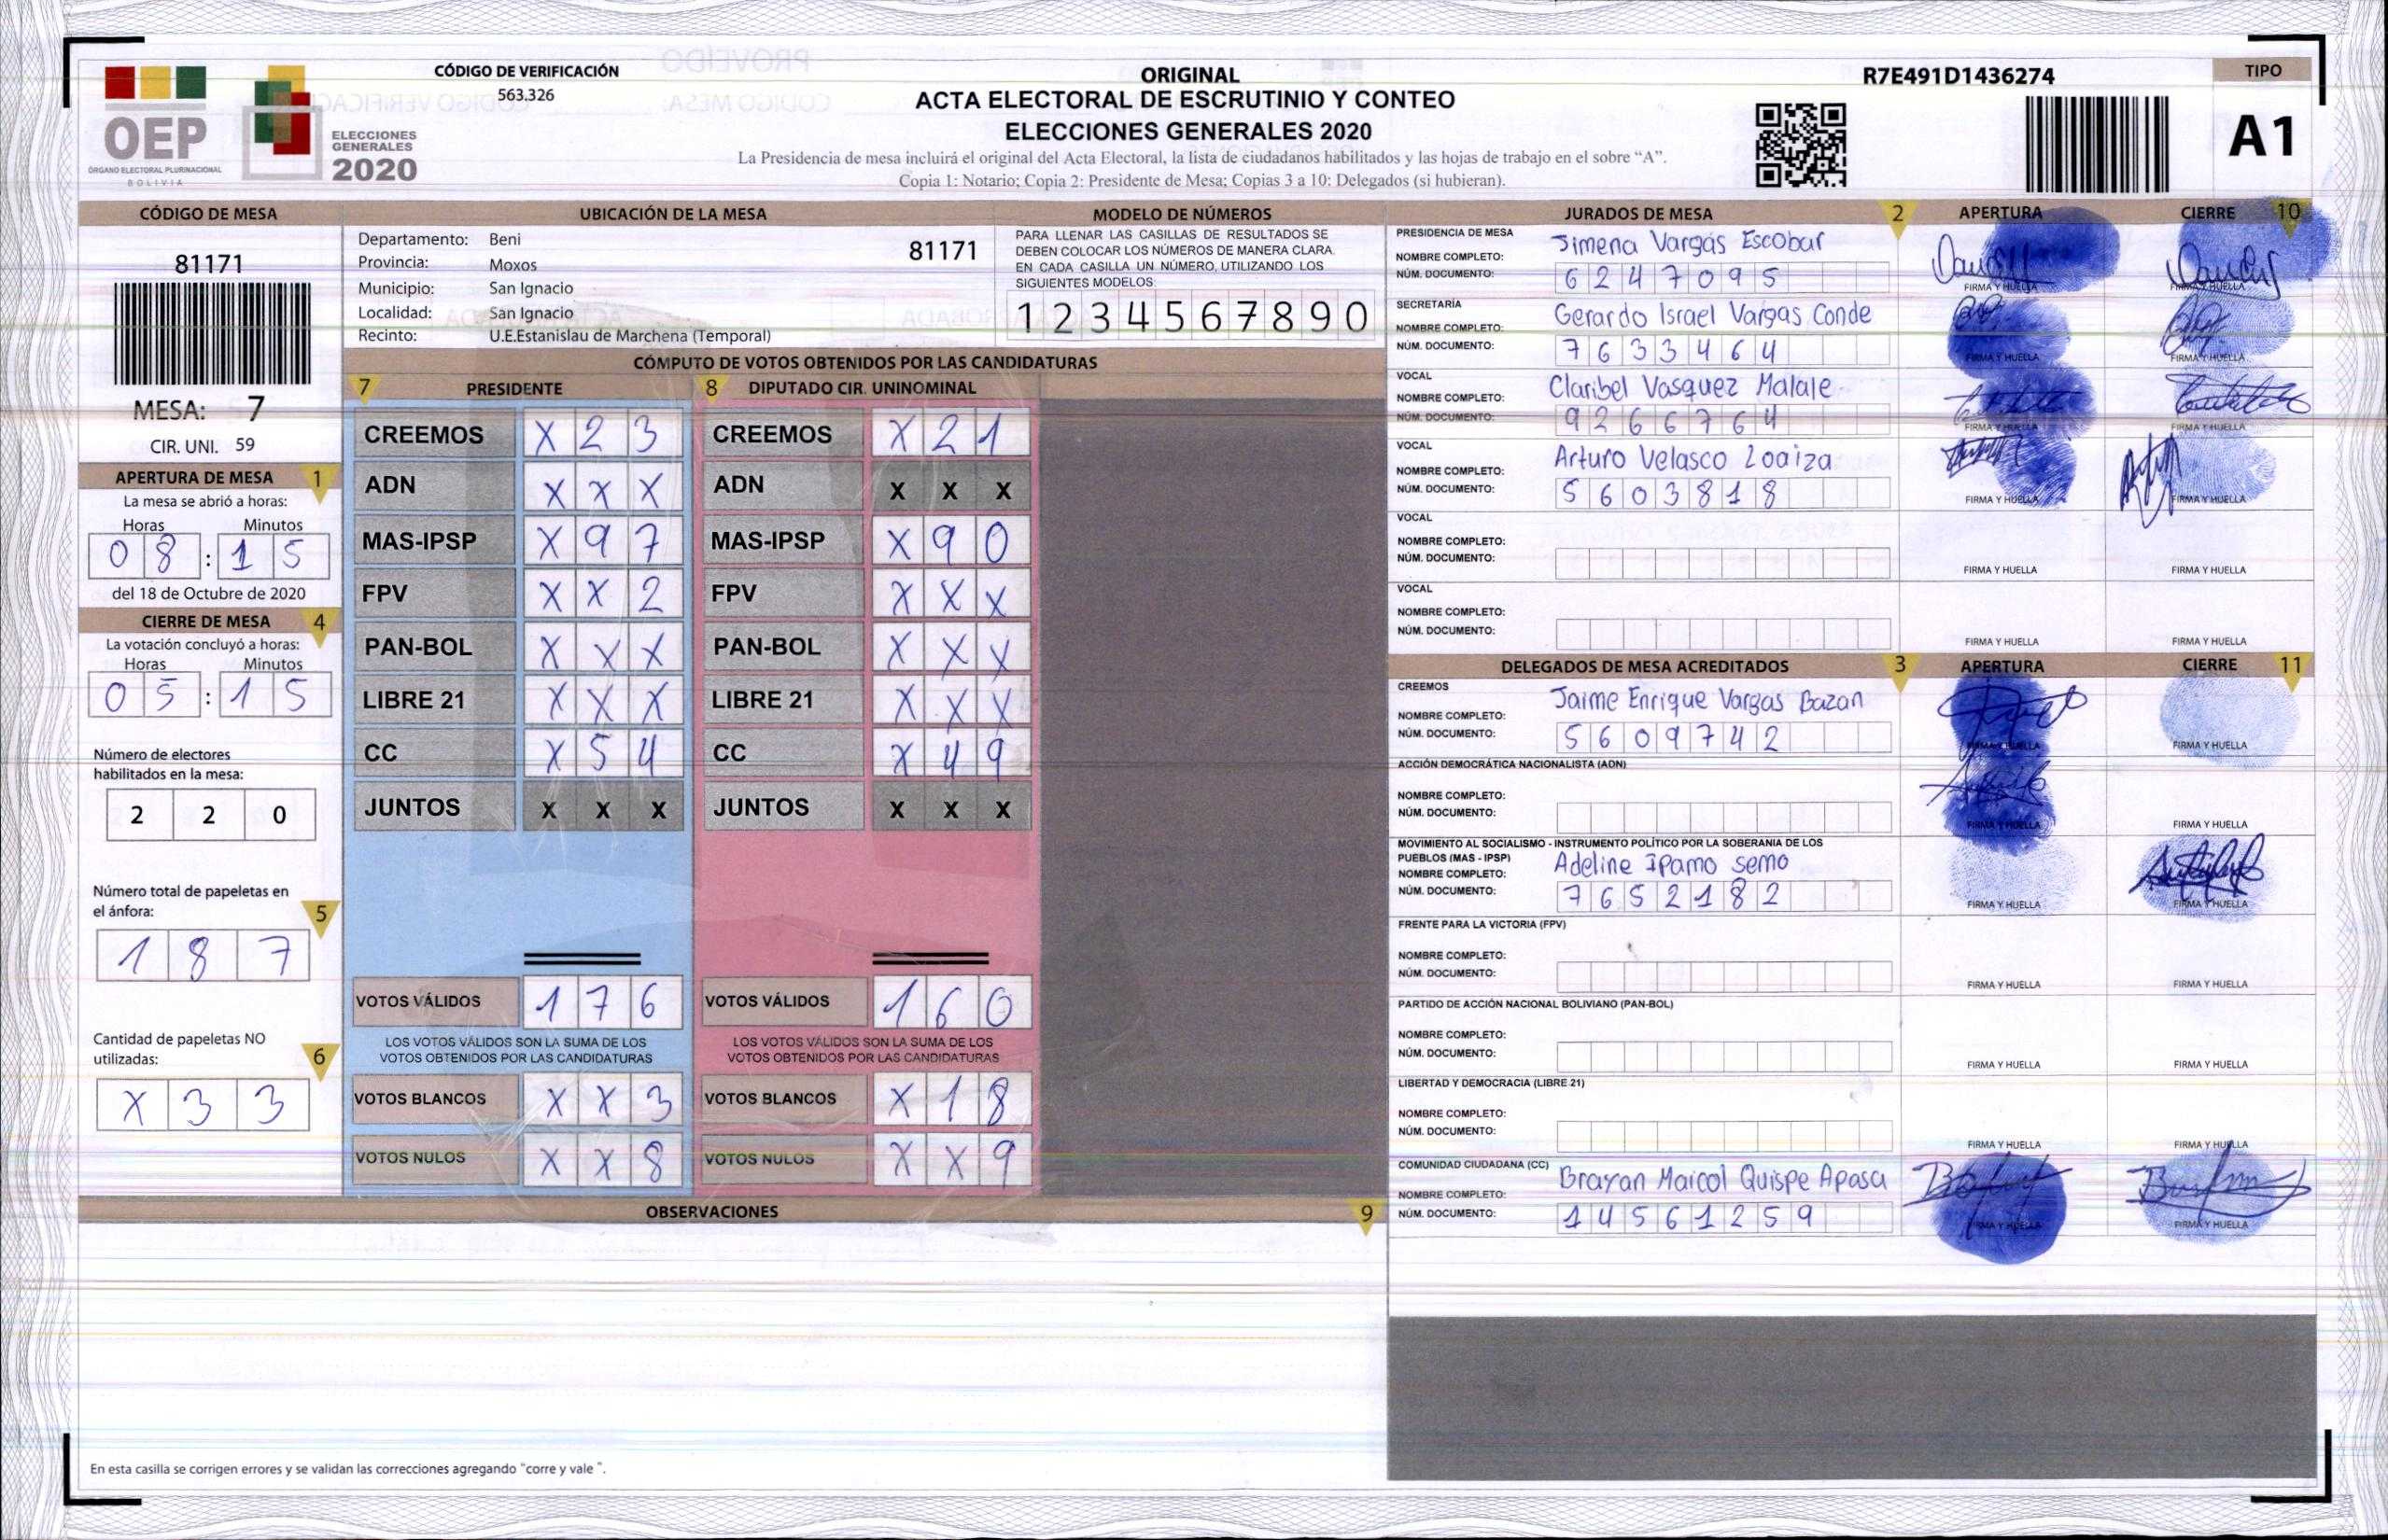 OEP
ÓRGANO ELECTORAL PLURINACIONAL
BOLIVIA
ELECCIONES
GENERALES
2020
CÓDIGO DE VERIFICACIÓN
563.326
ORIGINAL
ACTA ELECTORAL DE ESCRUTINIO Y CONTEO
ELECCIONES GENERALES 2020
La Presidencia de mesa incluirá el original del Acta Electoral, la lista de ciudadanos habilitados y las hojas de trabajo en el sobre “A”.
Copia 1: Notario; Copia 2: Presidente de Mesa; Copias 3 a 10: Delegados (si hubieran).
R7E491D1436274
TIPO
A1
CÓDIGO DE MESA
81171
MESA: 7
CIR. UNI. 59
APERTURA DE MESA 1
La mesa se abrió a horas:
Horas Minutos
0 8 : 1 5
del 18 de Octubre de 2020
CIERRE DE MESA 4
La votación concluyó a horas:
Horas Minutos
0 5 : 1 5
Número de electores
habilitados en la mesa:
2 2 0
Número total de papeletas en
el ánfora: 5
1 8 7
Cantidad de papeletas NO
utilizadas: 6
X 3 3
UBICACIÓN DE LA MESA
Departamento: Beni 81171
Provincia: Moxos
Municipio: San Ignacio
Localidad: San Ignacio
Recinto: U.E.Estanislau de Marchena (Temporal)
MODELO DE NÚMEROS
PARA LLENAR LAS CASILLAS DE RESULTADOS SE
DEBEN COLOCAR LOS NÚMEROS DE MANERA CLARA.
EN CADA CASILLA UN NÚMERO, UTILIZANDO LOS
SIGUIENTES MODELOS:
1 2 3 4 5 6 7 8 9 0
CÓMPUTO DE VOTOS OBTENIDOS POR LAS CANDIDATURAS
7 PRESIDENTE 8 DIPUTADO CIR. UNINOMINAL
CREEMOS X 2 3 CREEMOS X 2 1
ADN X X X ADN X X X
MAS-IPSP X 9 7 MAS-IPSP X 9 0
FPV X X 2 FPV X X X
PAN-BOL X X X PAN-BOL X X X
LIBRE 21 X X X LIBRE 21 X X X
CC X 5 4 CC X 4 9
JUNTOS X X X JUNTOS X X X
VOTOS VÁLIDOS 1 7 6 VOTOS VÁLIDOS 1 6 0
LOS VOTOS VÁLIDOS SON LA SUMA DE LOS LOS VOTOS VÁLIDOS SON LA SUMA DE LOS
VOTOS OBTENIDOS POR LAS CANDIDATURAS VOTOS OBTENIDOS POR LAS CANDIDATURAS
VOTOS BLANCOS X X 3 VOTOS BLANCOS X 1 8
VOTOS NULOS X X 8 VOTOS NULOS X X 9
OBSERVACIONES 9
En esta casilla se corrigen errores y se validan las correcciones agregando “corre y vale ”.
JURADOS DE MESA 2 APERTURA CIERRE 10
PRESIDENCIA DE MESA
NOMBRE COMPLETO: Jimena Vargas Escobar
NÚM. DOCUMENTO: 6 2 4 7 0 9 5
FIRMA Y HUELLA FIRMA Y HUELLA
SECRETARÍA
NOMBRE COMPLETO: Gerardo Israel Vargas Conde
NÚM. DOCUMENTO: 7 6 3 3 4 6 4
FIRMA Y HUELLA FIRMA Y HUELLA
VOCAL
NOMBRE COMPLETO: Claribel Vasquez Malale
NÚM. DOCUMENTO: 9 2 6 6 7 6 4
FIRMA Y HUELLA FIRMA Y HUELLA
VOCAL
NOMBRE COMPLETO: Arturo Velasco Loaiza
NÚM. DOCUMENTO: 5 6 0 3 8 1 8
FIRMA Y HUELLA FIRMA Y HUELLA
VOCAL
NOMBRE COMPLETO:
NÚM. DOCUMENTO:
FIRMA Y HUELLA FIRMA Y HUELLA
VOCAL
NOMBRE COMPLETO:
NÚM. DOCUMENTO:
FIRMA Y HUELLA FIRMA Y HUELLA
DELEGADOS DE MESA ACREDITADOS 3 APERTURA CIERRE 11
CREEMOS
NOMBRE COMPLETO: Jaime Enrique Vargas Bazan
NÚM. DOCUMENTO: 5 6 0 9 7 4 2
FIRMA Y HUELLA FIRMA Y HUELLA
ACCIÓN DEMOCRÁTICA NACIONALISTA (ADN)
NOMBRE COMPLETO:
NÚM. DOCUMENTO:
FIRMA Y HUELLA FIRMA Y HUELLA
MOVIMIENTO AL SOCIALISMO - INSTRUMENTO POLÍTICO POR LA SOBERANIA DE LOS
PUEBLOS (MAS - IPSP)
NOMBRE COMPLETO: Adeline Ipamo Semo
NÚM. DOCUMENTO: 7 6 5 2 1 8 2
FIRMA Y HUELLA FIRMA Y HUELLA
FRENTE PARA LA VICTORIA (FPV)
NOMBRE COMPLETO:
NÚM. DOCUMENTO:
FIRMA Y HUELLA FIRMA Y HUELLA
PARTIDO DE ACCIÓN NACIONAL BOLIVIANO (PAN-BOL)
NOMBRE COMPLETO:
NÚM. DOCUMENTO:
FIRMA Y HUELLA FIRMA Y HUELLA
LIBERTAD Y DEMOCRACIA (LIBRE 21)
NOMBRE COMPLETO:
NÚM. DOCUMENTO:
FIRMA Y HUELLA FIRMA Y HUELLA
COMUNIDAD CIUDADANA (CC)
NOMBRE COMPLETO: Brayan Maicol Quispe Apasa
NÚM. DOCUMENTO: 1 4 5 6 1 2 5 9
FIRMA Y HUELLA FIRMA Y HUELLA